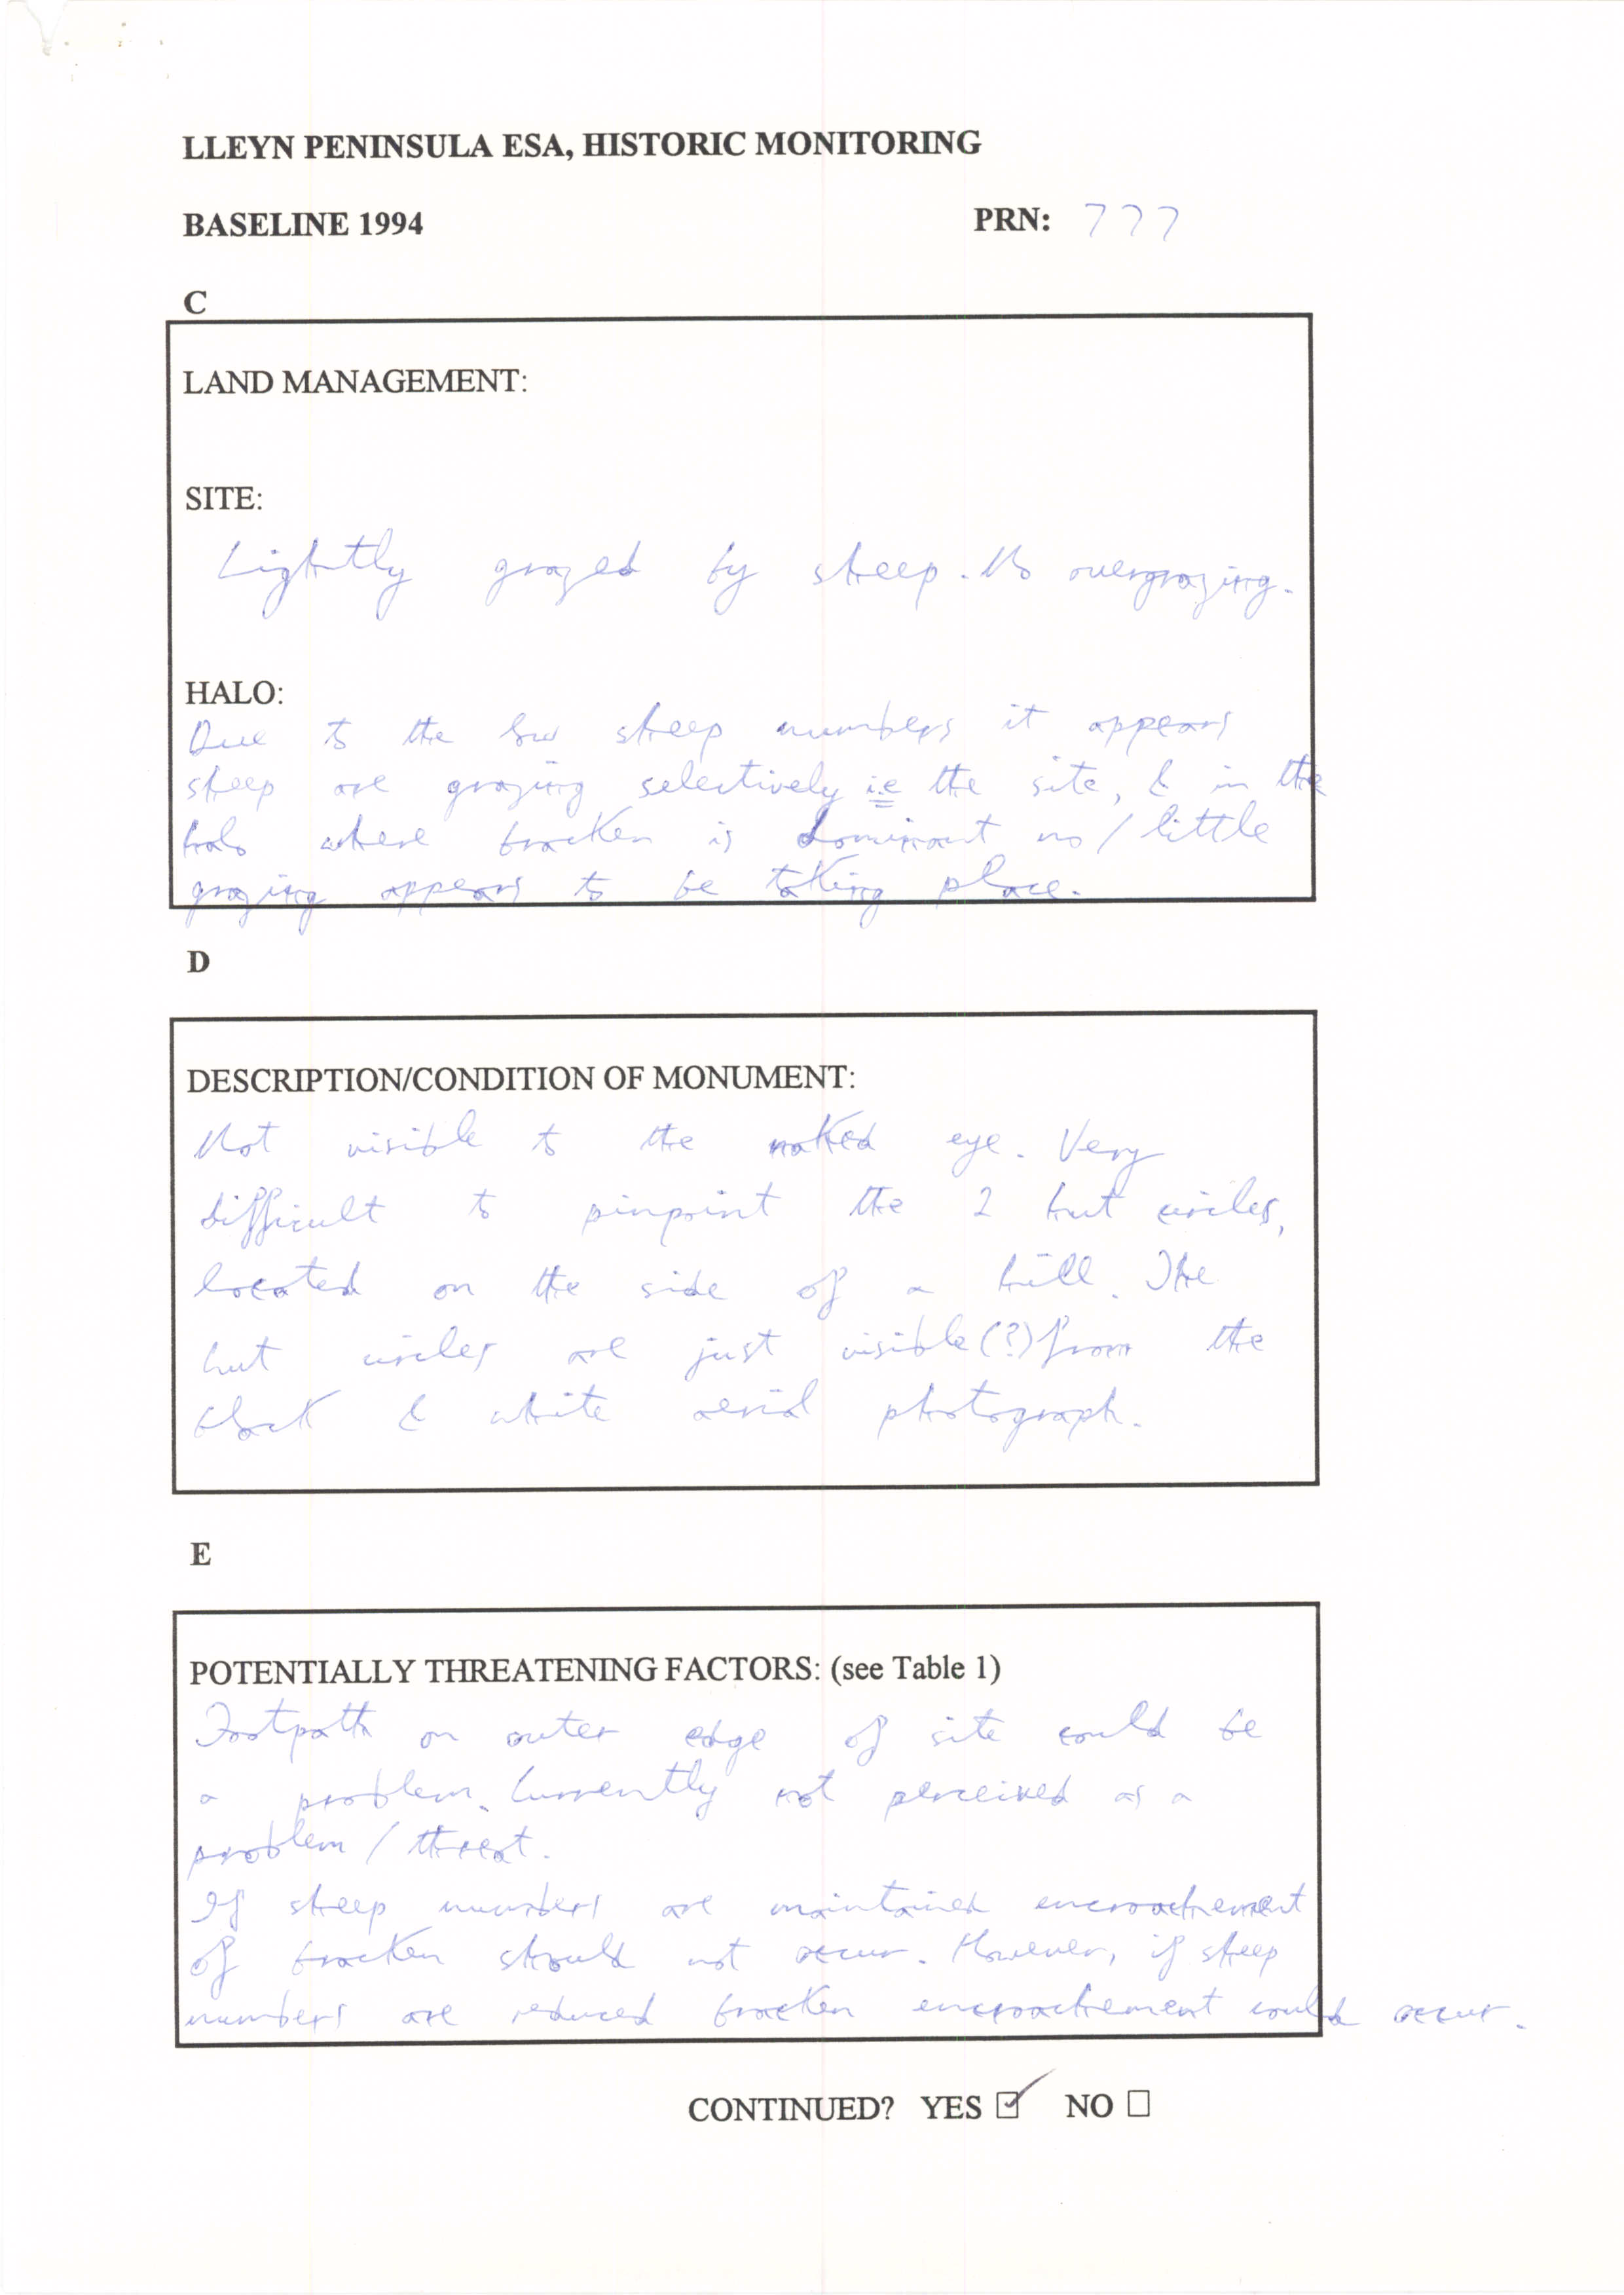 LLEYN PENINSULA ESA, HISTORIC MONITORING
BASELINE 1994 PRN: 777
C
LAND MANAGEMENT:
SITE:
Lightly grazed by sheep. No overgrazing.
HALO:
Due to the low sheep numbers it appears
sheep are grazing selectively i.e the site, & in the
halo where bracken is dominant no / little
grazing appears to be taking place.
D
DESCRIPTION/CONDITION OF MONUMENT:
Not visible to the naked eye. Very
difficult to pinpoint the 2 hut circles,
located on the side of a hill. The
hut circles are just visible (?) from the
black & white aerial photograph.
E
POTENTIALLY THREATENING FACTORS: (see Table 1)
Footpath on outer edge of site could be
a problem. Currently not perceived as a
problem / threat.
If sheep numbers are maintained encroachement
of bracken should not occur. However, if sheep
numbers are reduced bracken encroachement could occur.
CONTINUED? YES ☑ NO ☐